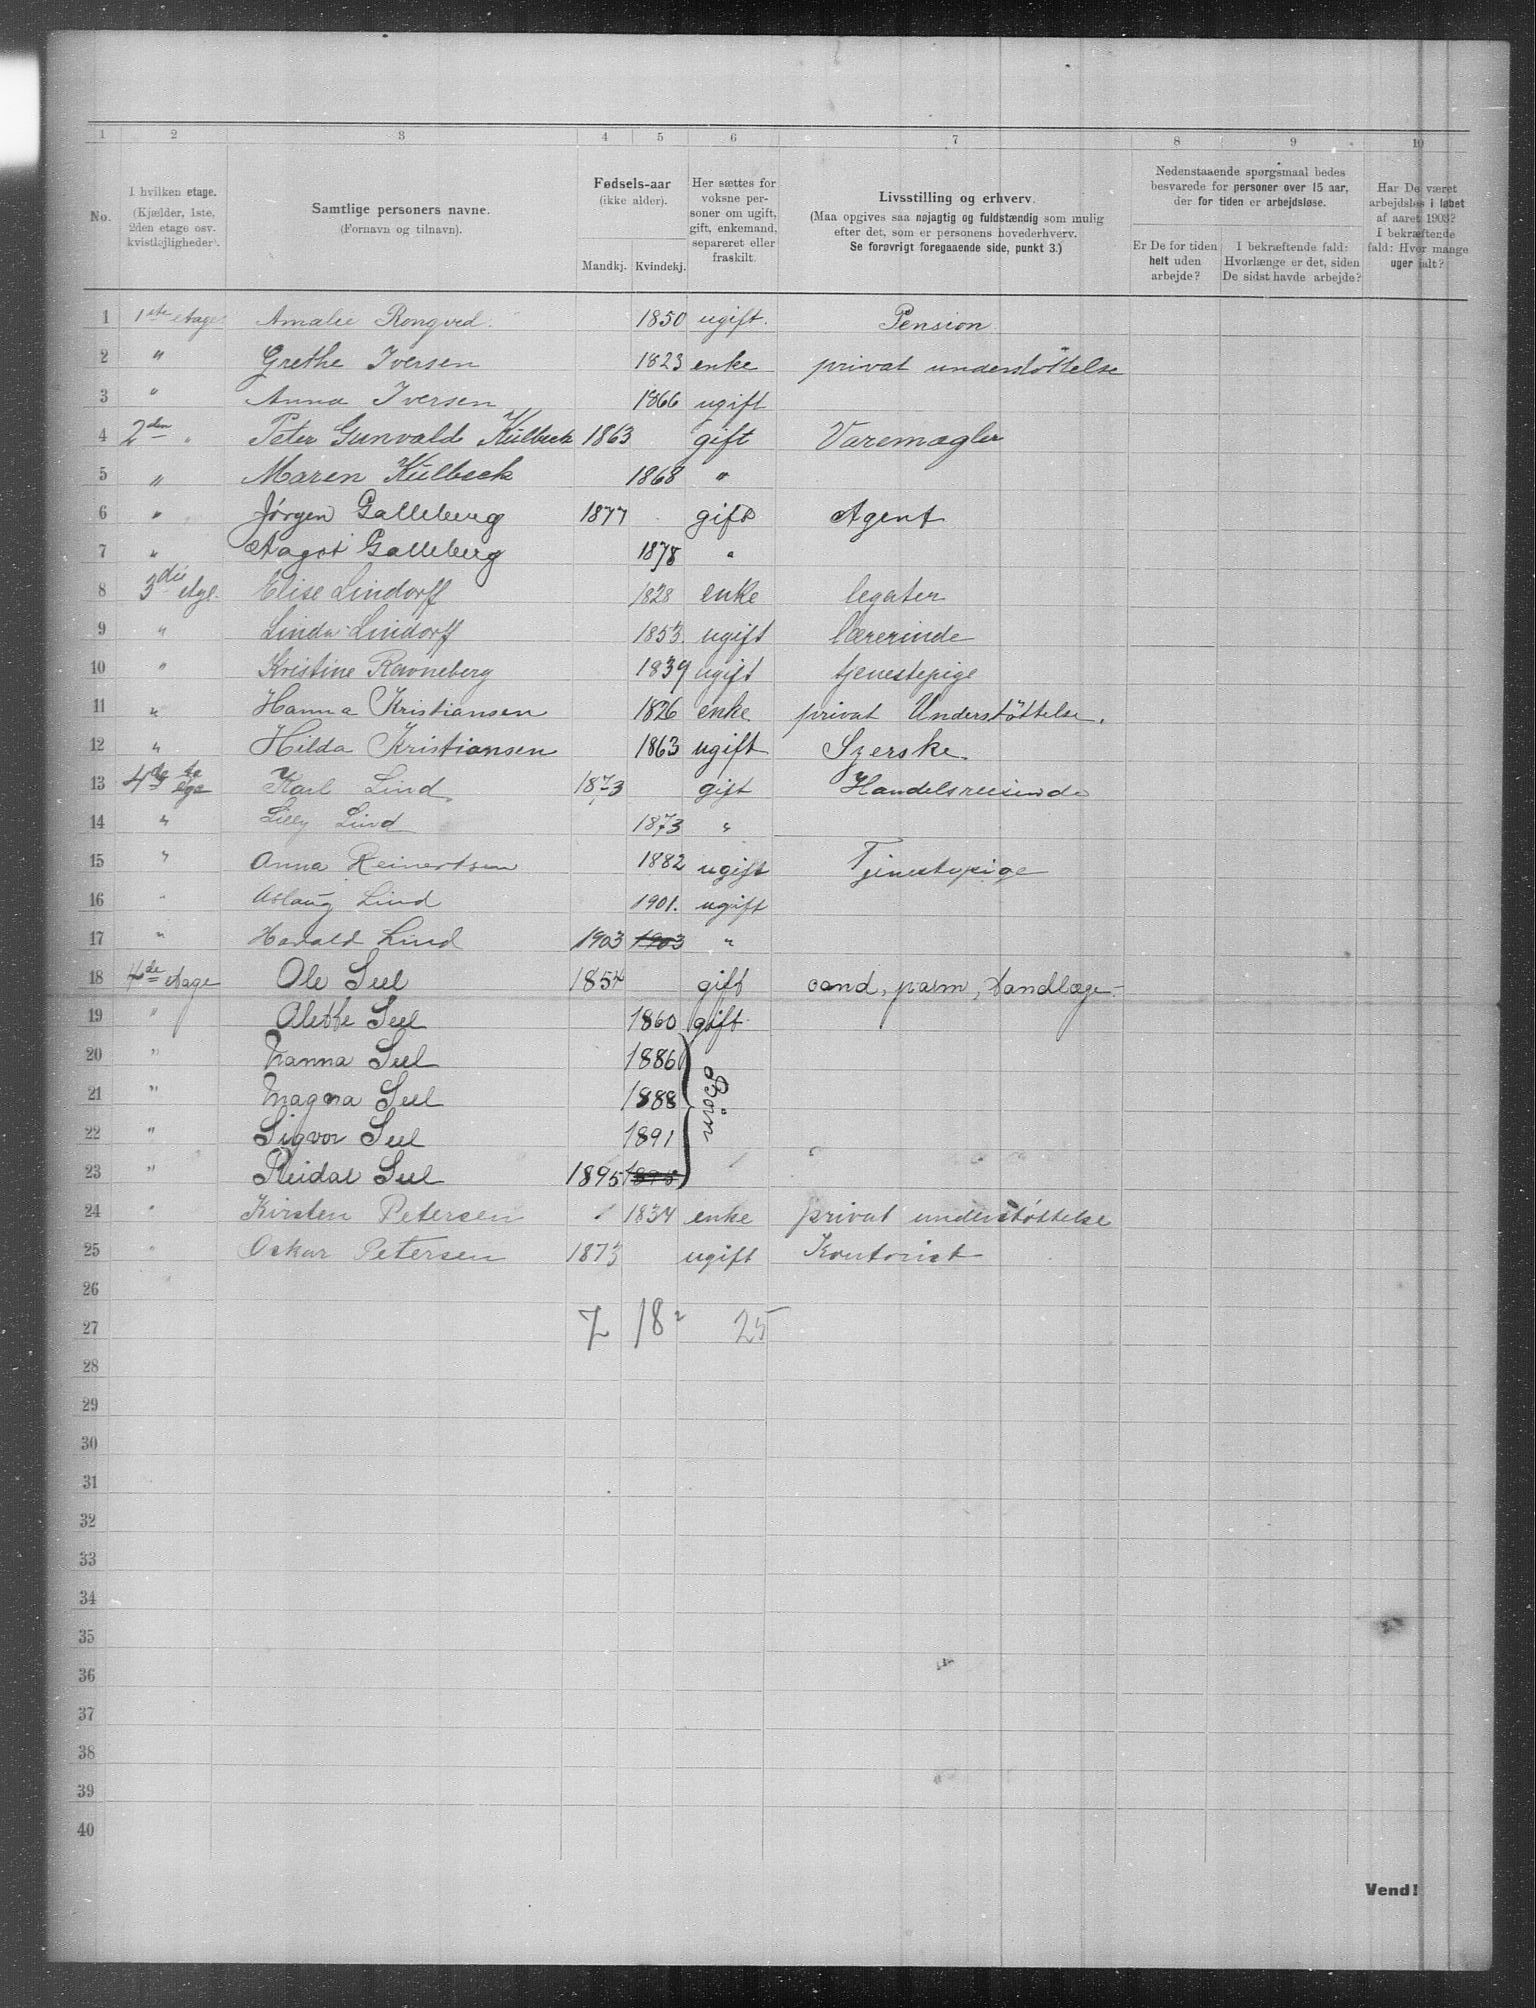 1 2 3 4 5 6 7 8 9 10
No.
I hvilken etage.
(Kjælder, 1ste, 2den etage osv. kvistlejligheder).
Samtlige personers navne.
(Fornavn og tilnavn).
Fødsels-aar
(ikke alder).
Mandkj. Kvindekj.
Her sættes for voksne personer om ugift, gift, enkemand, separeret eller fraskilt.
Livsstilling og erhverv.
(Maa opgives saa nøjagtig og fuldstændig som mulig efter det, som er personens hovederhverv.
Se forøvrigt foregaaende side, punkt 3.)
Nedenstaaende spørgsmaal bedes besvarede for personer over 15 aar, der for tiden er arbejdsløse.
Er De for tiden helt uden arbejde?
I bekræftende fald: Hvorlænge er det, siden De sidst havde arbejde?
Har De været arbejdsløs i løbet af aaret 1903? I bekræftende fald: Hvor mange uger ialt?
1 1ste etage Amalie Rongved. 1850 ugift. Pension
2 " Grethe Iversen 1823 enke privat understøttelse
3 " Anna Iversen 1866 ugift
4 2den " Peter Gunvald Külbeck 1863 gift Varemægler
5 " Maren Külbeck 1868 "
6 " Jørgen Galleberg 1877 gift Agent
7 " Aagot Galleberg 1878 "
8 3die etge. Elise Lindorff 1828 enke legater
9 " Linda Lindorff 1853. ugift lærerinde
10 " Kristine Ravneberg 1839 ugift tjenestepige
11 " Hanna Kristiansen 1826 enke privat Understøttelse.
12 " Hilda Kristiansen 1863 ugift Syerske.
13 4de Karl Lind 1873 gift Handelsreisende
14 " Lilly Lind 1873 "
15 " Anna Reinertsen 1882 ugift Tjenestepige
16 " Aslaug Lind 1901. ugift
17 " Harald Lind 1903 1903 "
18 4de etage Ole Seel 1854 gift cand, parm, Tandlæge
19 " Alette Seel 1860 gift
20 " Nanna Seel 1886
21 " Magna Seel 1888
22 " Sigvor Seel 1891
23 " Reidar Seel 1895 1895
Børn
24 " Kirsten Petersen 1834 enke privat understøttelse
25 " Oskar Petersen 1873 ugift Kontorist
26
27 7 18 25
28
29
30
31
32
33
34
35
36
37
38
39
40
Vend!